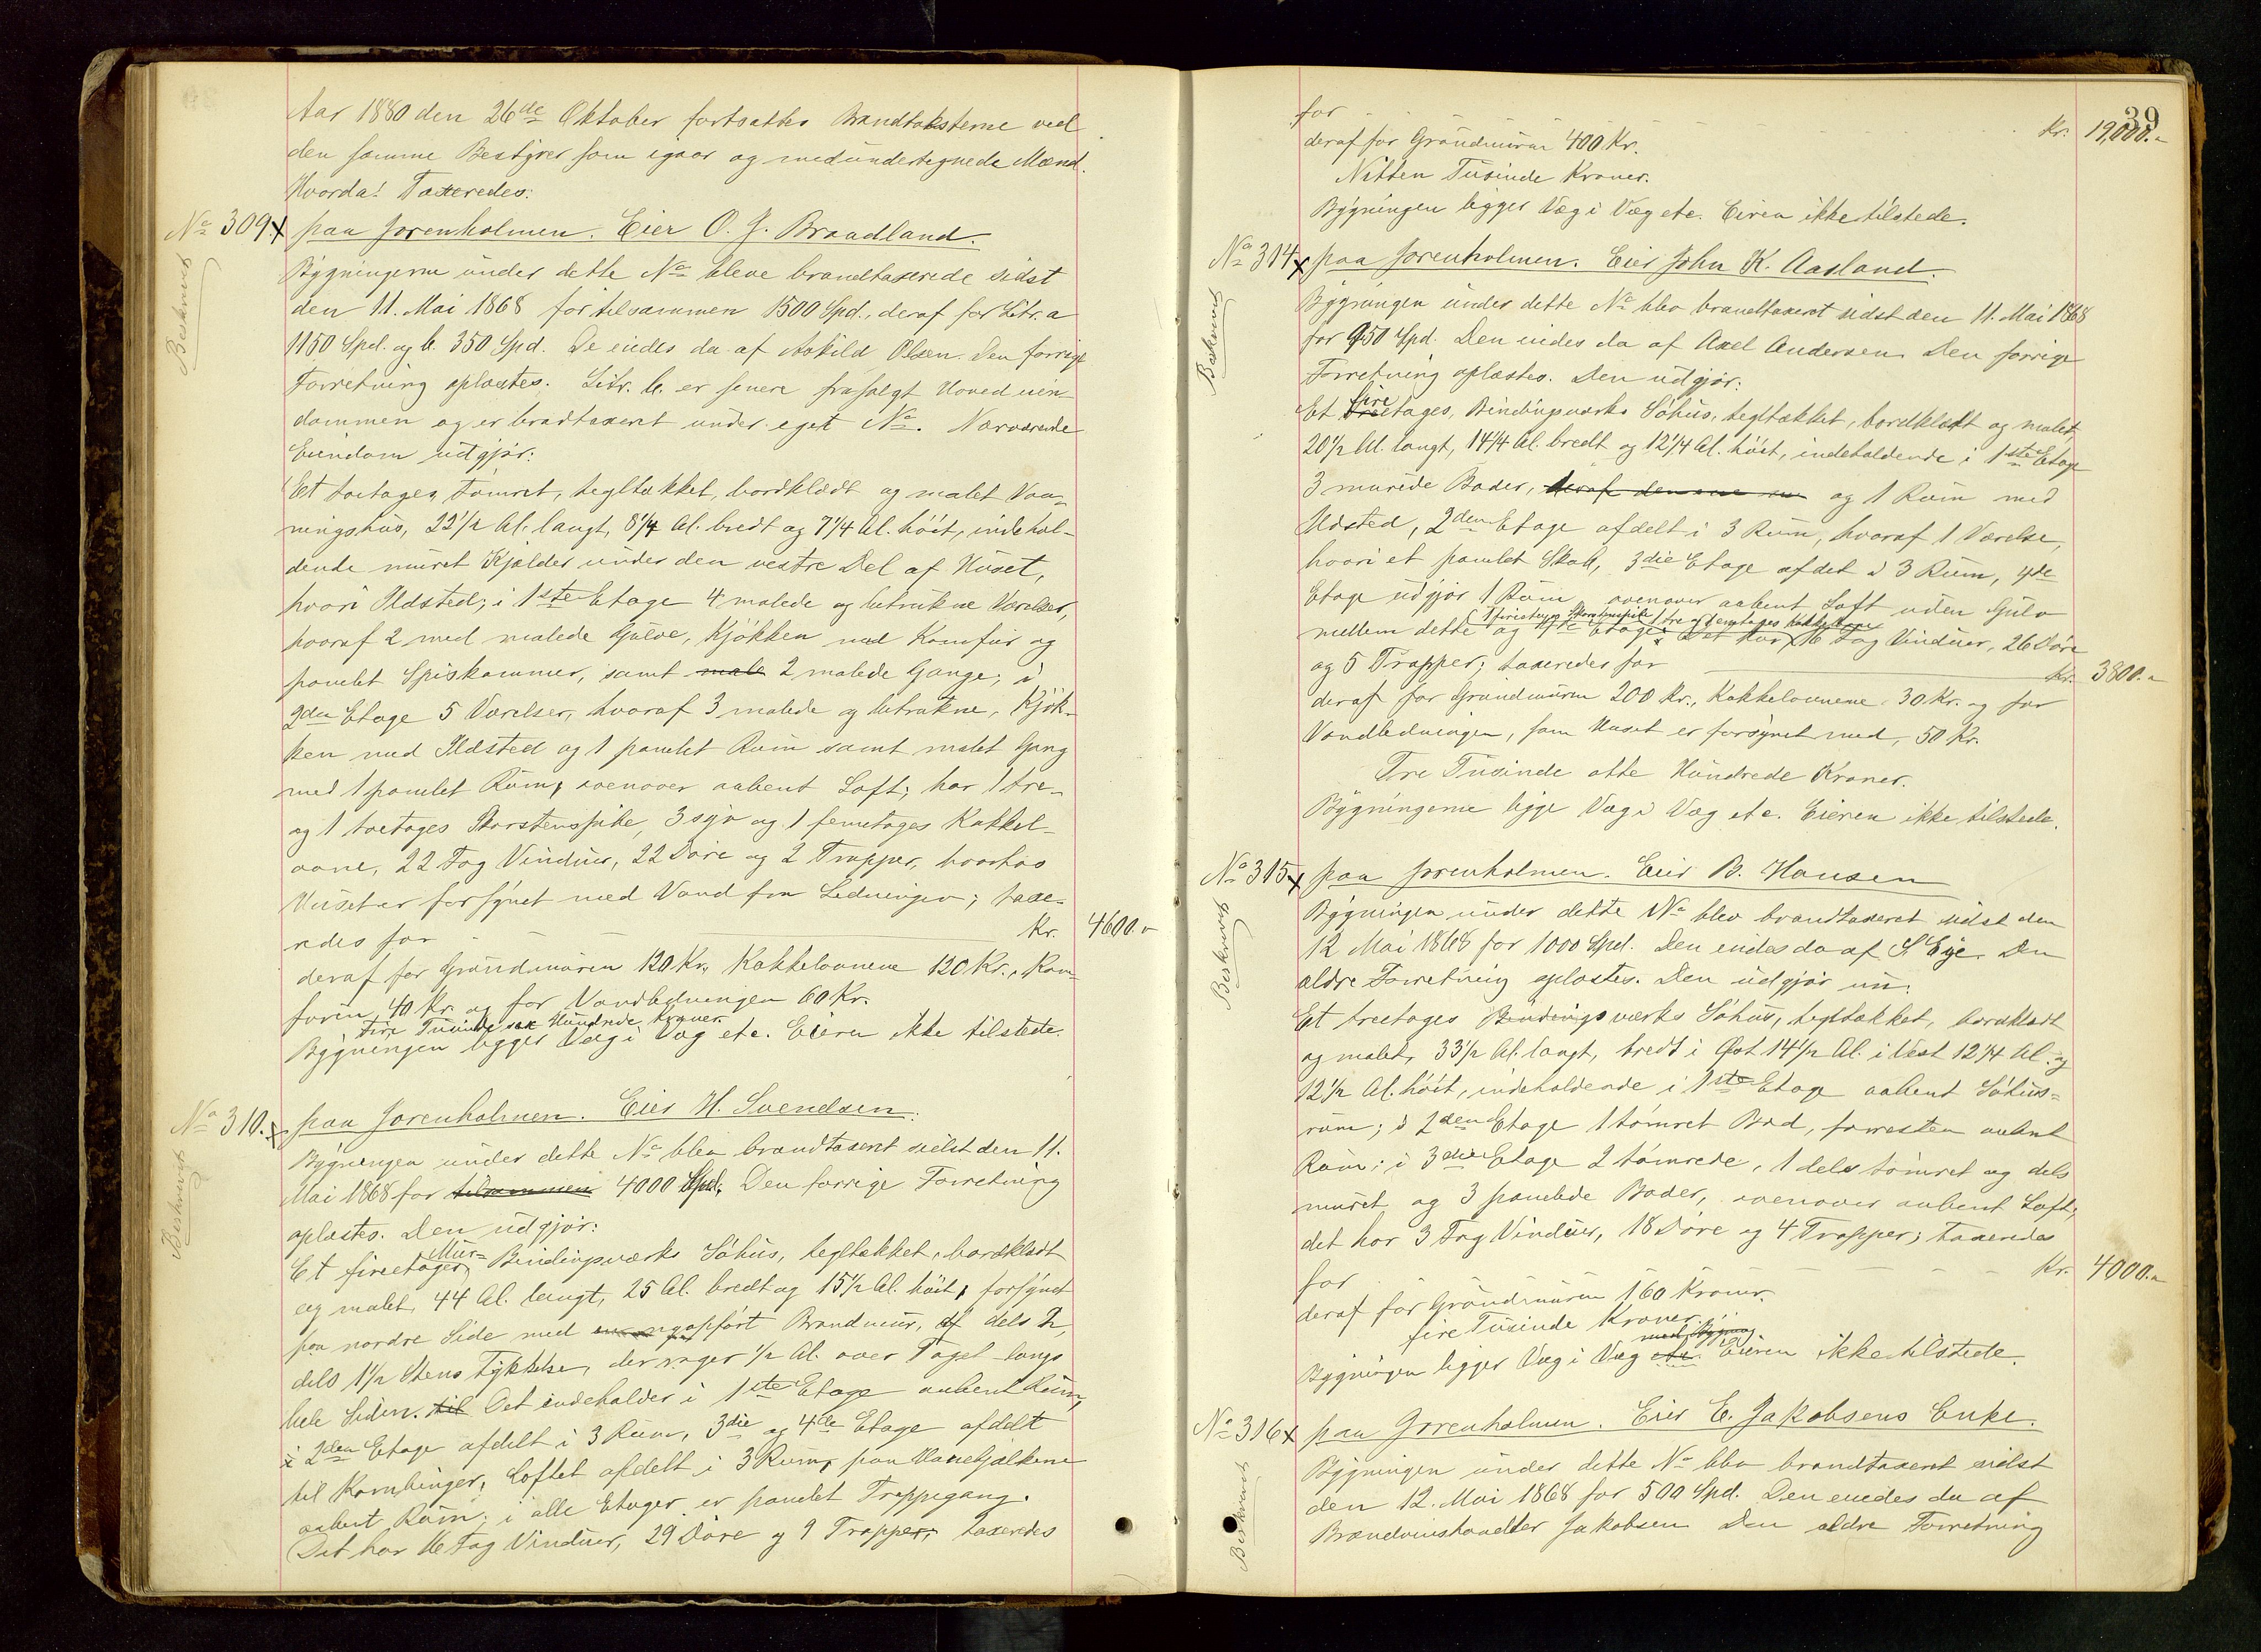 Aar 1880 den 26de Oktober fortsattes Brandtaksterne ved
den samme Bestyrer som igaar og medundertegnede Mænd.
Hvorda! Taxeredes:
No 309.x paa Jorenholmen. Eier O. J. Braadland.
Beskrevet
Bygningerne under dette No bleve brandtaxerede sidst
den 11. Mai 1868 for tilsammen 1500 Spd., deraf for Litr. a
1150 Spd. og b. 350 Spd. De eiedes da af Askild Olsen. Den forrige
Forretning oplæstes. Litr. b. er senere frasolgt Hovedeien-
dommen og er brandtaxeret under eget No. Nærværende
Eiendom udgjør:
Et toetages, tømret, tegltækket, bordklædt og malet Vaa-
ningshus, 22 1/2 Al. langt, 8 1/4 Al. bredt og 7 1/4 Al. høit, indehol-
dende muret Kjælder under den vestre Del af Huset,
hvori Ildsted; i 1ste Etage 4 malede og betrukne Værelser,
hvoraf 2 med malede Gulve, Kjøkken med Komfur og
panelet Spiskammer, samt male 2 malede Gange; i
2den Etage 5 Værelser, hvoraf 3 malede og betrukne, Kjøk-
ken med Ildsted og 1 panelet Rum samt malet Gang
med 1 panelet Rum, ovenover aabent Loft; har 1 tre-
og 1 toetages Skorstenspibe, 3 syv og 1 femetages Kakkel-
ovne, 22 Fag Vinduer, 22 Døre og 2 Trapper, hvorhos
Huset er forsynet med Vand fra Ledningen; taxe-
redes for Kr. 4600.-
deraf for Grundmuren 120 Kr., Kakkelovnene 120 Kr., Kom-
furen 40 Kr. og for Vandledningen 60 Kr.
Fire Tusinde sex Hundrede Kroner.
Bygningen ligger Væg i Væg etc. Eieren ikke tilstede.
No 310.x paa Jorenholmen. Eier H. Svendsen.
Beskrevet
Bygningen under dette No blev brandtaxeret sidst den 11.
Mai 1868 for tilsammen 4000 Spd. Den forrige Forretning
oplæstes. Den udgjør:
Et fireetages, Mur- Bindingsværks Søhus, tegltækket, bordklædt
og malet, 44 Al. langt, 25 Al. bredt og 15 1/2 Al. høit, forsynet
paa nordre Side med opført Brandmur, af dels 2,
dels 1 1/2 Stens Tykkelse, der rager 1/2 Al. over Taget langs
hele Siden. til Det indeholder i 1ste Etage aabent Rum,
i 2den Etage afdelt i 3 Rum, 3die og 4de Etage afdelt
til Kornbinger, Loftet afdelt i 3 Rum, paa Hanebjælkene
aabent Rum; i alle Etager er panelet Trappegang.
Det har 16 Fag Vinduer, 29 Døre og 9 Trapper; taxeredes
39
for Kr. 19,000.-
deraf for Grundmuren 400 Kr.
Nitten Tusinde Kroner.
Bygningen ligger Væg i Væg etc. Eieren ikke tilstede.
No 314x paa Jorenholmen. Eier John K. Aasland.
Beskrevet
Bygningen under dette No blev brandtaxeret sidst den 11. Mai 1868
for 950 Spd. Den eiedes da af Axel Andersen. Den forrige
Forretning oplæstes. Den udgjør:
Et fire treetages, Bindingsværks Søhus, tegltækket, bordklædt og malet,
20 1/2 Al. langt, 14 1/4 Al. bredt og 12 1/4 Al. høit, indeholdende i 1ste Etage
3 murede Boder, deraf den ene og 1 Rum med
Ildsted, 2den Etage afdelt i 3 Rum, hvoraf 1 Værelse,
hvori et panelet Skab, 3die Etage afdelt i 3 Rum, 4de
Etage udgjør 1 Rum, ovenover aabent Loft uden Gulv
mellem dette og 4de Etage. Det har (1 fireetages Skorstenspibe, 1 tre og 1 femetages Kakkelovne) 16 Fag Vinduer, 26 Døre
og 5 Trapper; taxeredes for Kr. 3800.-
deraf for Grundmuren 200 Kr., Kakkelovnene 30 Kr. og for
Vandledningen, som Huset er forsynet med, 50 Kr.
Tre Tusinde otte Hundrede Kroner.
Bygningerne ligge Væg i Væg etc. Eieren ikke tilstede.
No 315x paa Jorenholmen. Eier B. Hansen
Beskrevet
Bygningen under dette No blev brandtaxeret sidst den
12 Mai 1868 for 1000 Spd. Den eiedes da af S. Eie. Den
ældre Forretning oplæstes. Den udgjør nu:
Et treetages Bindingsværks Søhus, tegltækket, bordklædt
og malet, 33 1/2 Al. langt, bredt i Øst 14 1/2 Al. i Vest 12 1/4 Al. og
12 1/2 Al. høit, indeholdende i 1ste Etage aabent Søhus-
rum; i 2den Etage 1 tømret Bod, forresten aabent
Rum; i 3die Etage 2 tømrede, 1 dels tømret og dels
muret og 3 panelede Boder, ovenover aabent Loft;
det har 3 Fag Vinduer, 18 Døre og 4 Trapper; taxeredes
for Kr. 4000.-
deraf for Grundmuren 160 Kroner.
fire Tusinde Kroner.
Bygningen ligger Væg i Væg etc. Eieren ikke tilstede.
No 316x paa Jorenholmen. Eier E. Jakobsens Enke.
Beskrevet
Bygningen under dette No blev brandtaxeret sidst
den 12. Mai 1868 for 500 Spd. Den eiedes da af
Brændevinshandler Jakobsen. Den ældre Forretning